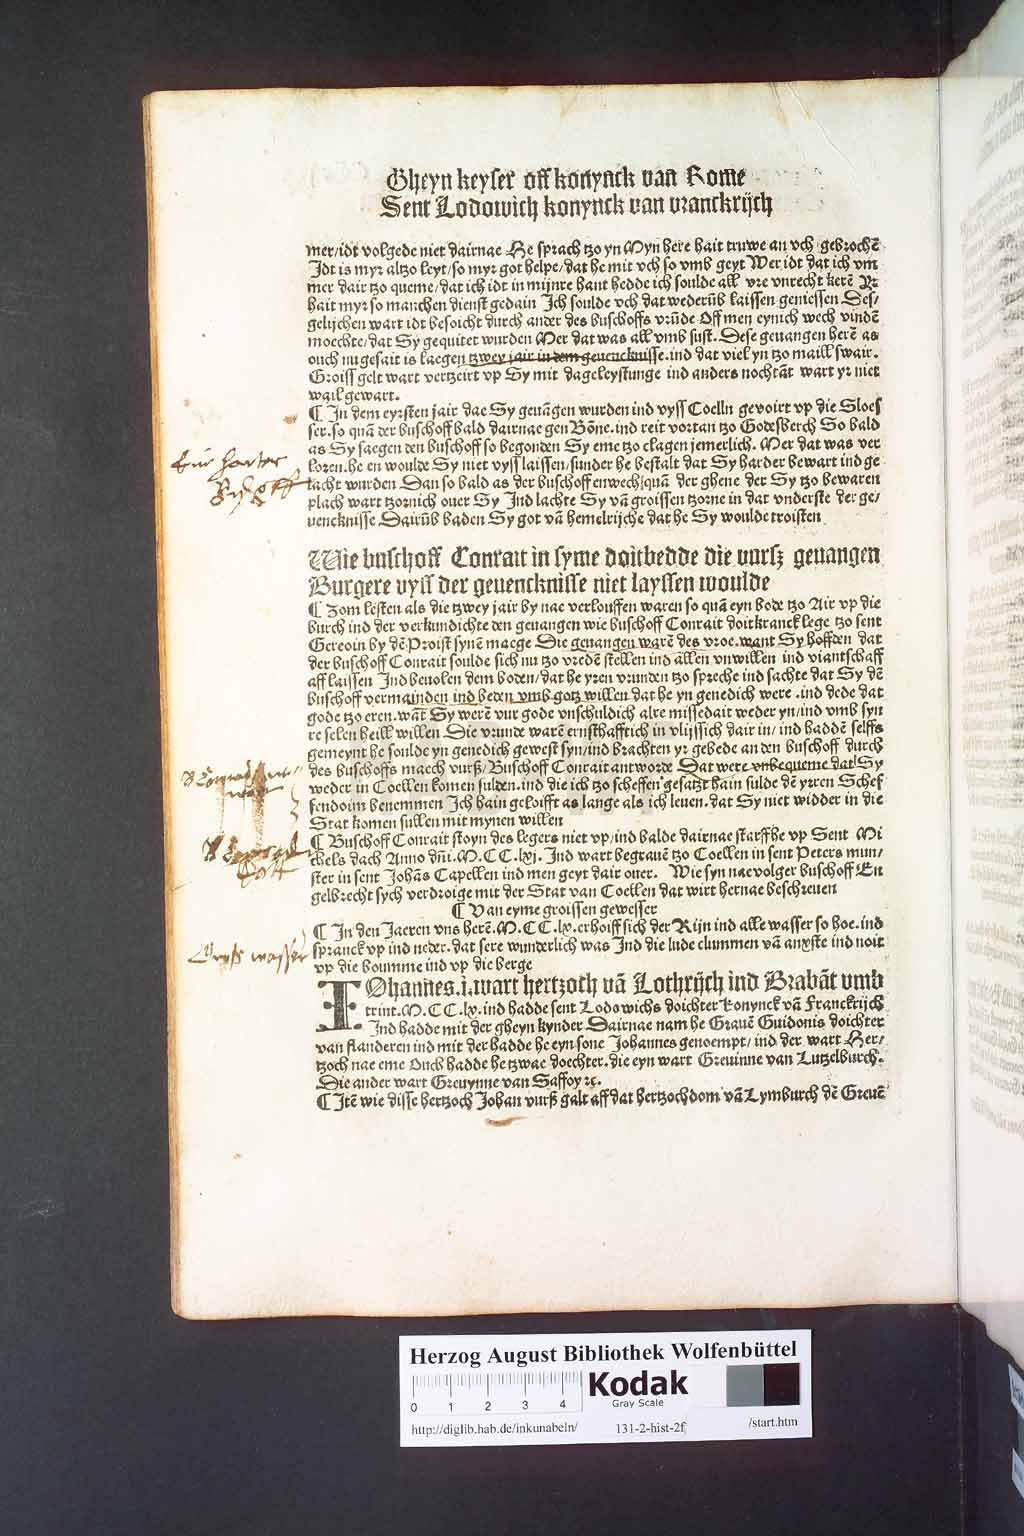 Gheyn keyser off konynck van Rome
Sent Lodowich konynck van vranckrijch
mer/idt volgede niet dairnae He sprach tzo yn Myn here hait truwe an vch gebrochē
Idt is myr altzo leyt/so myr got helpe/dat he mit vch so vmb geyt Wer idt dat ich vm
mer dair tzo queme/dat ich idt in mijnre hant hedde ich soulde all vre vnrecht kerē Ir
hait myr so manchen dienst gedain Ich soulde vch dat wederūb laissen geniessen Des/
gelijchen wart idt besoicht durch ander des buschoffs vrūde Off men eynich wech vindē
moechte/dat Sy gequitet wurden Mer dat was all vmb sust. Dese geuangen herē as
ouch nu gesait is laegen tzwey jair in dem geuencknisse.ind dat viel yn tzo maill swair.
Groiss gelt wart vertzeirt vp Sy mit dageleystunge ind anders nochtāt wart yr niet
wail gewart.
¶ In dem eyrsten jair dae Sy geuāgen wurden ind vyss Coelln gevoirt vp die Sloes
ser.so quā der buschoff bald dairnae gen Bōne.ind reit vortan tzo Godesberch So bald
as Sy saegen den buschoff so begonden Sy eme tzo clagen jemerlich. Mer dat was ver
loren.he en woulde Sy niet vyss laissen/sunder he bestalt dat Sy harder bewart ind ge
lacht wurden Dan so bald as der buschoff enwech quā der ghene der Sy tzo bewaren
plach wart tzornich ouer Sy Ind lachte Sy vā groissen tzorne in dat vnderste der ge/
uencknisse Dairūb baden Sy got vā hemelrijche dat he Sy woulde troisten
Wie buschoff Conrait in syme doitbedde die vursz geuangen
Burgere vyss der geuencknisse niet layssen woulde
¶ Zom lesten als die tzwey jair by nae verlouffen waren so quā eyn bode tzo Air vp die
burch ind der verkundichte den geuangen wie buschoff Conrait doitkranck lege tzo sent
Gereoin by dē Proist synē maege Die geuangen warē des vroe.want Sy hoffden dat
der buschoff Conrait soulde sich nu tzo vredē stellen ind allen vnwillen ind viantschaff
aff laissen Ind beuolen dem boden/dat he yren vrunden tzo spreche ind sachte dat Sy dē
buschoff vermainden ind beden vmb gotz willen dat he yn genedich were .ind dede dat
gode tzo eren.wāt Sy werē vur gode vnschuldich alre missedait weder yn/ind vmb syn
re selen heill willen Die vrunde warē ernsthafftich in vlijssich dair in/ind haddē selffs
gemeynt he soulde yn genedich gewest syn/ind brachten yr gebede an den buschoff durch
des buschoffs maech vurß/Buschoff Conrait antworde Dat were vnbequeme dat Sy
weder in Coellen komen sulden.ind die ich tzo scheffen gesatzt hain sulde dē yrren Schef
fendoim benemmen Ich hain geloifft as lange als ich leuen.dat Sy niet widder in die
Stat komen sullen mit mynen willen
¶ Buschoff Conrait stoyn des legers niet vp/ind balde dairnae starffhe vp Sent Mi
chels dach Anno dñi.M.CC.lxj. Ind wart begrauē tzo Coellen in sent Peters mun/
ster in sent Johās Capellen ind men geyt dair ouer. Wie syn naevolger buschoff En
gelbrecht sych verdroige mit der Stat van Coellen dat wirt hernae beschreuen
¶ Van eyme groissen gewesser
¶ In den Jaeren vns herē.M.CC.lx.erhoiff sich der Rijn ind alle wasser so hoe.ind
spranck vp ind neder.dat sere wunderlich was Ind die lude clummen vā anxste ind noit
vp die boumme ind vp die berge
IOhannes.i.wart hertzoch vā Lothrijch ind Brabāt vmb
trint.M.CC.lx.ind hadde sent Lodowichs doichter Konynck vā Franckrijch
Ind hadde mit der gheyn kynder Dairnae nam he Grauē Guidonis doichter
van flanderen ind mit der hadde he eyn sone Johannes genoempt/ind der wart Her/
tzoch nae eme Ouch hadde he tzwae doechter.die eyn wart Greuinne van Lutzelburch.
Die ander wart Greuynne van Saffoy ⁊c.
¶ Itē wie disse hertzoch Johan vurß galt aff dat hertzochdom vā Lymburch dē Greuē
Groß wasser
Herzog August Bibliothek Wolfenbüttel
0 1 2 3 4
Kodak
Gray Scale
http://diglib.hab.de/inkunabeln/ 131-2-hist-2f /start.htm